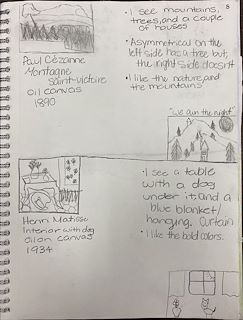 8
• I see mountains,
trees, and a couple
of houses
• Asymmetrical on the
left side has a tree but
the right side doesnt
• I like the nature, and
the mountains
Paul Cézanne
Montagne
Saint-victoire
oil canvas
1890
"we own the night"
• I see a table
with a dog
under it, and a
blue blanket/
hanging. Curtain
• I like the bold colors.
Henri Matisse
Interior with dog
oil on canvas
1934